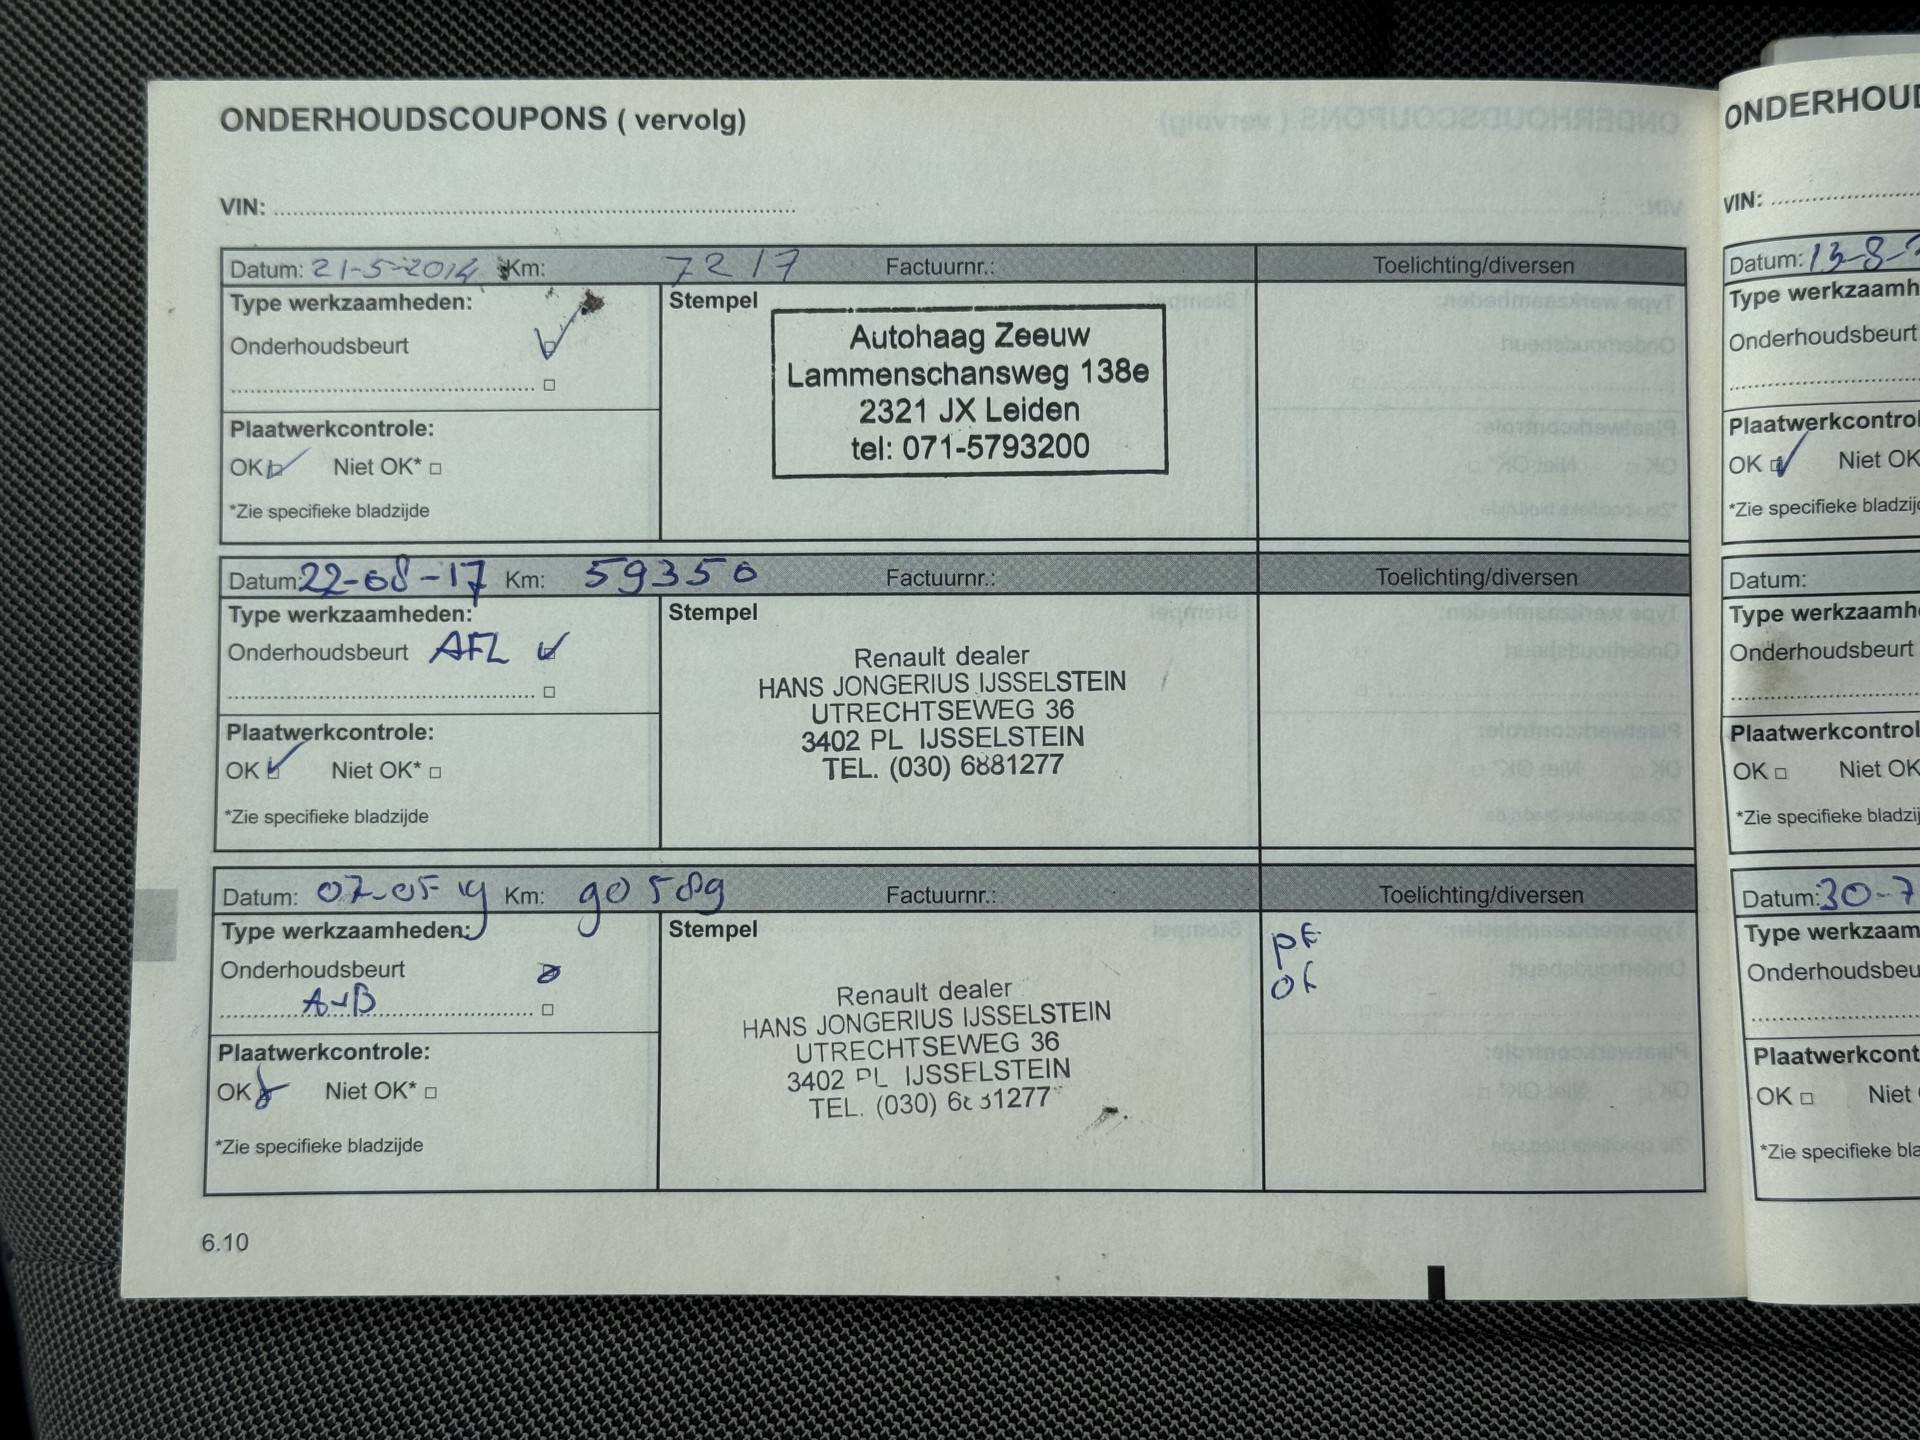 ONDERHOUDSCOUPONS ( vervolg)
VIN:
Datum: 21-5-2014 Km: 7217 Factuurnr.: Toelichting/diversen
Type werkzaamheden:
Onderhoudsbeurt
Plaatwerkcontrole:
OK Niet OK*
*Zie specifieke bladzijde
Stempel
Autohaag Zeeuw
Lammenschansweg 138e
2321 JX Leiden
tel: 071-5793200
Datum: 22-08-17 Km: 59350 Factuurnr.: Toelichting/diversen
Type werkzaamheden:
Onderhoudsbeurt AFL
Plaatwerkcontrole:
OK Niet OK*
*Zie specifieke bladzijde
Stempel
Renault dealer
HANS JONGERIUS IJSSELSTEIN
UTRECHTSEWEG 36
3402 PL IJSSELSTEIN
TEL. (030) 6881277
Datum: 07-05-19 Km: 90589 Factuurnr.: Toelichting/diversen
Type werkzaamheden:
Onderhoudsbeurt
A+B
Plaatwerkcontrole:
OK Niet OK*
*Zie specifieke bladzijde
Stempel
Renault dealer
HANS JONGERIUS IJSSELSTEIN
UTRECHTSEWEG 36
3402 PL IJSSELSTEIN
TEL. (030) 6881277
6.10
ONDERHOUD
VIN:
Datum: 13-8-
Type werkzaamh
Onderhoudsbeurt
Plaatwerkcontrol
OK Niet OK
*Zie specifieke bladzij
Datum:
Type werkzaamh
Onderhoudsbeurt
Plaatwerkcontrol
OK Niet OK
*Zie specifieke bladzij
Datum: 30-7
Type werkzaam
Onderhoudsbeu
Plaatwerkcont
OK Niet
*Zie specifieke bla